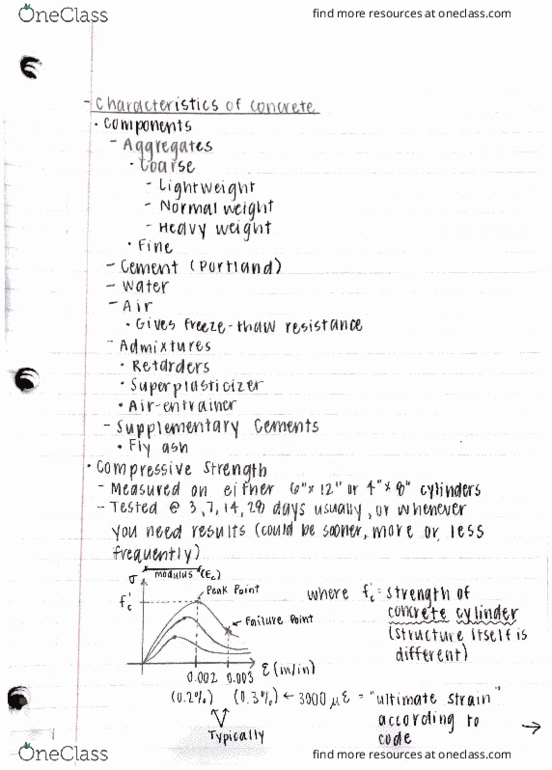 OneClass
find more resources at oneclass.com
- Characteristics of concrete
• Components
- Aggregates
• Coarse
- Lightweight
- Normal weight
- Heavy weight
• Fine
- Cement (Portland)
- Water
- Air
• Gives freeze-thaw resistance
- Admixtures
• Retarders
• Superplasticizer
• Air-entrainer
- Supplementary Cements
• Fly ash
• Compressive Strength
- Measured on either 6"x 12" or 4"x 8" cylinders
- Tested @ 3,7,14,28 days usually, or whenever
you need results (could be sooner, more or less
frequently)
σ modulus (Ec)
f'c Peak Point
Failure Point
where f'c = strength of
concrete cylinder
(structure itself is
different)
0.002 0.003 ε (in/in)
(0.2%) (0.3%) ← 3000 με = "ultimate strain"
according to
code →
Typically
OneClass
find more resources at oneclass.com